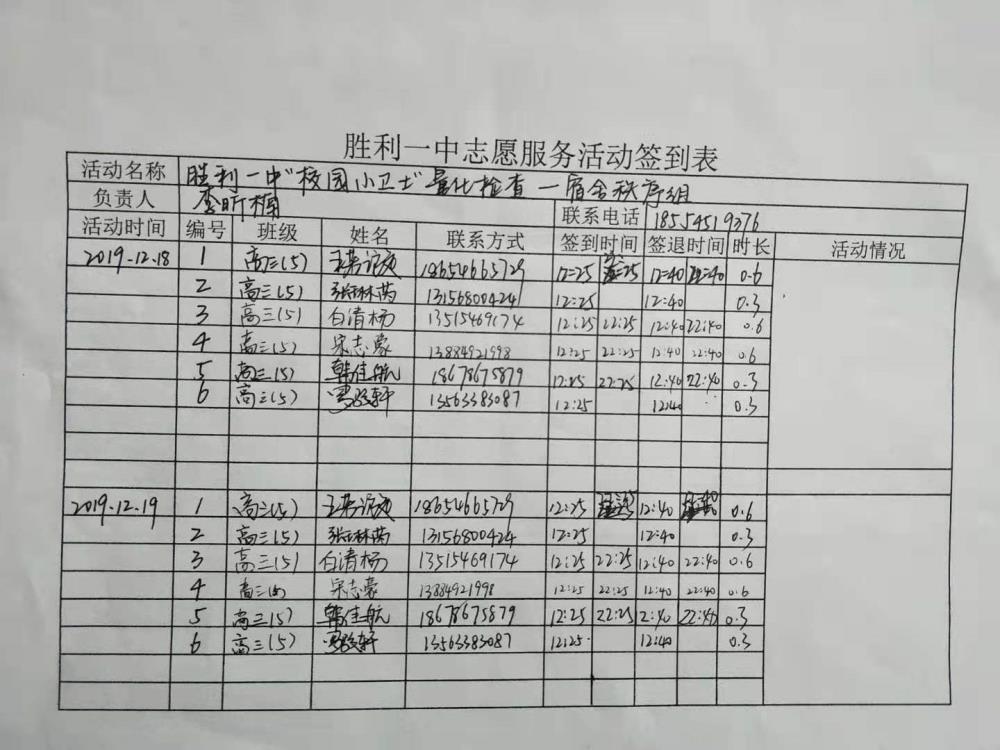 胜利一中志愿服务活动签到表
活动名称 胜利一中"校园小卫士"量化检查—宿舍秩序组
负责人 李昕楠 联系电话 18554519376
活动时间 编号 班级 姓名 联系方式 签到时间 签退时间 时长 活动情况
2019.12.18 1 高三(5) 18654665729 12:25 12:40 22:40 0.6
2 高三(5) 13156800424 12:25 12:40 0.3
3 高三(5) 白清杨 13515469174 12:25 22:25 12:40 22:40 0.6
4 高三(5) 宋志豪 13884921998 12:25 22:25 12:40 22:40 0.6
5 高三(5) 韩佳航 18678675879 12:25 22:25 12:40 22:40 0.3
6 高三(5) 13563383087 12:25 12:40 0.3
2019.12.19 1 高三(5) 18654665729 12:25 12:40 0.6
2 高三(5) 13156800424 12:25 12:40 0.3
3 高三(5) 白清杨 13515469174 12:25 22:25 12:40 22:40 0.6
4 高三(5) 宋志豪 13884921998 12:25 22:25 12:40 22:40 0.6
5 高三(5) 韩佳航 18678675879 12:25 22:25 12:40 22:40 0.3
6 高三(5) 13563383087 12:25 12:40 0.3